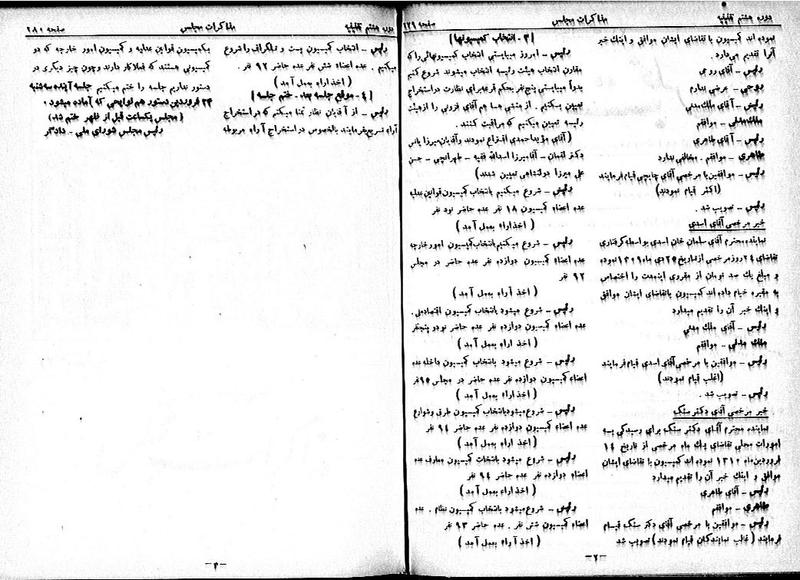 دوره هشتم تقنینیه
مذاکرات مجلس
صفحه ۱۲۹
نموده اند کمیسیون با تقاضای ایشان موافق و اینک خبر
آنرا تقدیم میدارد.
رئیس - آقای روحی
روحی - عرضی ندارم
رئیس - آقای ملک مدنی
ملک مدنی - موافقم
رئیس - آقای طاهری
طاهری - موافقم . مخالفی ندارد
رئیس - موافقین با مرخصی آقای چایچی قیام فرمایند
(اکثر قیام نمودند)
رئیس - تصویب شد .
خبر مرخصی آقای اسدی
نماینده محترم آقای سلمان خان اسدی بواسطه گرفتاری
تقاضای ۲۴ روز مرخصی از تاریخ ۲۵ دی ماه ۱۳۰۹ نموده
و مبلغ یک صد تومان از مقرری اینمدت را اختصاص
به مقبره خیام داده اند کمیسیون با تقاضای ایشان موافق
و اینک خبر آن را تقدیم میدارد
رئیس - آقای ملک مدنی
ملک مدنی - موافقم
رئیس - موافقین با مرخصی آقای اسدی قیام فرمایند
(اغلب قیام نمودند)
رئیس - تصویب شد .
خبر مرخصی آقای دکتر سنگ
نماینده محترم آقای دکتر سنگ برای رسیدگی به
امورات محلی تقاضای یک ماه مرخصی از تاریخ ۱۴
فروردین ماه ۱۳۱۰ نموده اند کمیسیون با تقاضای ایشان
موافق و اینک خبر آن را تقدیم میدارد
رئیس - آقای طاهری
طاهری - موافقم
رئیس - موافقین با مرخصی آقای دکتر سنگ قیام
فرمایند (غالب نمایندگان قیام نمودند) تصویب شد
[۳ - انتخاب کمیسیونها]
رئیس - امروز میبایستی انتخاب کمیسیونهائی را که
مقارن انتخاب هیئت رئیسه انتخاب میشوند شروع کنیم
بدواً میبایستی پنج نفر بحکم قرعه برای نظارت در استخراج
تعیین بکنیم . از منشی ها هم آقای فزونی را از هیئت
رئیسه تعیین میکنیم که مراقبت کنند.
(آقای مؤید احمدی اقتراع نمودند و آقایان میرزا یانس
دکتر لقمان - آقا میرزا اسدالله فقیه - طهرانچی - حسن
علی میرزا دولتشاهی تعیین شدند)
رئیس - شروع میکنیم بانتخاب کمیسیون قوانین عدلیه
عده اعضاء کمیسیون ۱۸ نفر عده حاضر نود نفر
(اخذ آراء بعمل آمد)
رئیس - شروع میکنیم بانتخاب کمیسیون امور خارجه
عده اعضاء کمیسیون دوازده نفر عده حاضر در مجلس
۹۲ نفر
(اخذ آراء بعمل آمد)
رئیس - شروع میشود بانتخاب کمیسیون اقتصاد ملی .
عده اعضاء کمیسیون دوازده نفر عده حاضر نود و پنج نفر
(اخذ آراء بعمل آمد)
رئیس - شروع میشود بانتخاب کمیسیون داخله عده
اعضاء کمیسیون دوازده نفر عده حاضر در مجلس ۹۵ نفر
(اخذ آراء بعمل آمد)
رئیس - شروع میشود بانتخاب کمیسیون طرق و شوارع
عده اعضاء کمیسیون دوازده نفر عده حاضر ۹۴ نفر
(اخذ آراء بعمل آمد)
رئیس - شروع میشود بانتخاب کمیسیون معارف عده
اعضاء کمیسیون دوازده نفر عده حاضر ۹۴ نفر
(اخذ آراء بعمل آمد)
رئیس - شروع میشود بانتخاب کمیسیون نظام . عده
اعضاء کمیسیون شش نفر . عده حاضر ۹۳ نفر
(اخذ آراء بعمل آمد)
-۲-
دوره هشتم تقنینیه
مذاکرات مجلس
صفحه ۲۸۰
رئیس - انتخاب کمیسیون پست و تلگراف را شروع
میکنیم . عده اعضاء شش نفر عده حاضر ۹۲ نفر.
(اخذ آراء بعمل آمد)
[۴ - موقع جلسه بعد - ختم جلسه]
رئیس - از آقایان نظار تمنا میکنم که در استخراج
آراء تسریع فرمایند بالخصوص در استخراج آراء مربوطه
بکمیسیون قوانین عدلیه و کمیسیون امور خارجه که دو
کمیسیونی هستند که فعلا کار دارند و چون چیز دیگری در
دستور نداریم جلسه را ختم میکنیم جلسه آینده سه شنبه
۲۴ فروردین دستور هم لوایحی که آماده میشود .
(مجلس یکساعت قبل از ظهر ختم شد)
رئیس مجلس شورای ملی - دادگر
-۳-